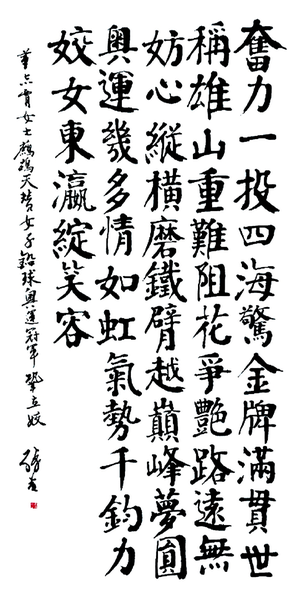 奮力一投四海驚金牌滿貫世
稱雄山重難阻花爭艷路遠無
妨心縱橫磨鐵臂越巔峰夢圓
奧運幾多情如虹氣勢千鈞力
姣女東瀛綻笑容
女士鷓鴣天贊女子鉛球奧運冠軍鞏立姣